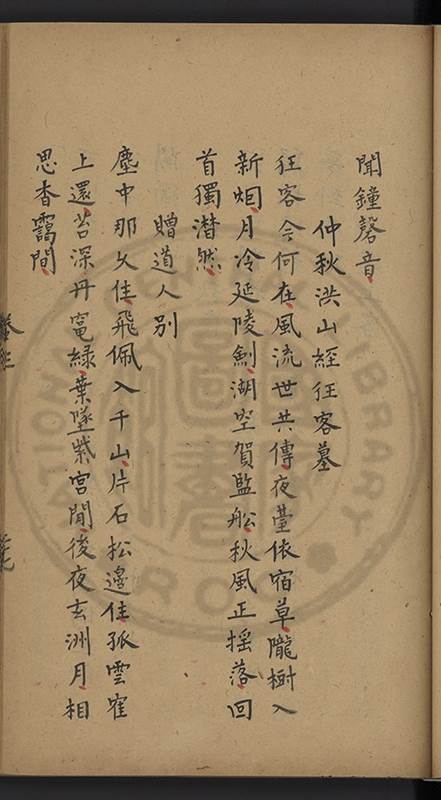 聞鐘磬音
仲秋洪山經狂客墓
狂客今何在風流世共傳夜臺依宿草隴樹入
新烟月冷延陵劍湖空賀監船秋風正揺落回
首獨潸然
贈道人别
塵中那久住飛佩入千山片石松邊住孤雲崔
上還苔深丹竃緑葉墜紫宮閒後夜玄洲月相
思杳靄間